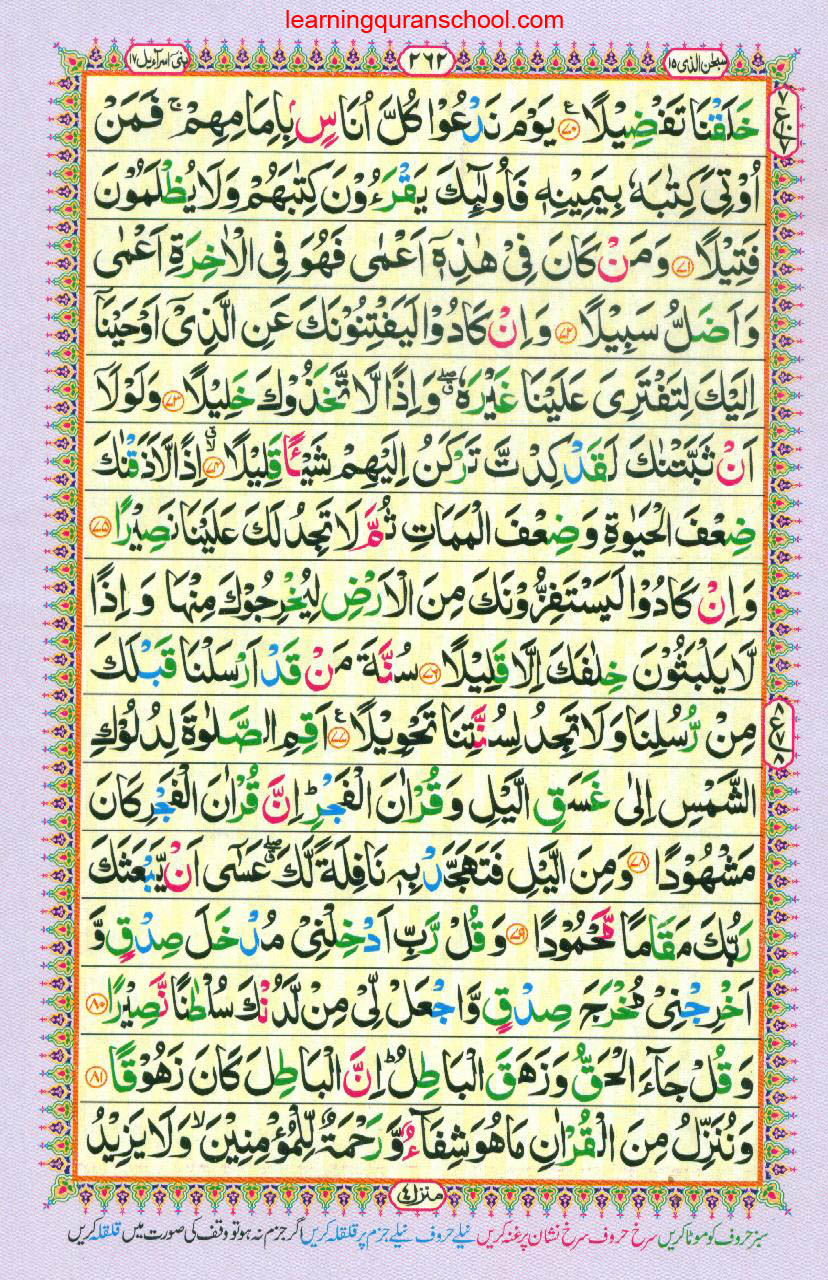 learningquranschool.com
سبحن الذی ۱۵
۲۶۲
بنی اسرآءیل ۱۷
خَلَقْنَا تَفْضِیْلًا ﴿۷۰﴾ یَوْمَ نَدْعُوْا كُلَّ اُنَاسٍۭ بِاِمَامِهِمْ ۚ فَمَنْ
اُوْتِیَ كِتٰبَهٗ بِیَمِیْنِهٖ فَاُولٰٓىِٕكَ یَقْرَءُوْنَ كِتٰبَهُمْ وَلَا یُظْلَمُوْنَ
فَتِیْلًا ﴿۷۱﴾ وَمَنْ كَانَ فِیْ هٰذِهٖۤ اَعْمٰی فَهُوَ فِی الْاٰخِرَةِ اَعْمٰی
وَاَضَلُّ سَبِیْلًا ﴿۷۲﴾ وَاِنْ كَادُوْا لَیَفْتِنُوْنَكَ عَنِ الَّذِیْۤ اَوْحَیْنَاۤ
اِلَیْكَ لِتَفْتَرِیَ عَلَیْنَا غَیْرَهٗ ۖۗ وَاِذًا لَّاتَّخَذُوْكَ خَلِیْلًا ﴿۷۳﴾ وَلَوْلَاۤ
اَنْ ثَبَّتْنٰكَ لَقَدْ كِدْتَّ تَرْكَنُ اِلَیْهِمْ شَیْـًٔا قَلِیْلًا ﴿۷۴﴾ۗۙ اِذًا لَّاَذَقْنٰكَ
ضِعْفَ الْحَیٰوةِ وَضِعْفَ الْمَمَاتِ ثُمَّ لَا تَجِدُ لَكَ عَلَیْنَا نَصِیْرًا ﴿۷۵﴾
وَاِنْ كَادُوْا لَیَسْتَفِزُّوْنَكَ مِنَ الْاَرْضِ لِیُخْرِجُوْكَ مِنْهَا وَاِذًا
لَّا یَلْبَثُوْنَ خِلٰفَكَ اِلَّا قَلِیْلًا ﴿۷۶﴾ سُنَّةَ مَنْ قَدْ اَرْسَلْنَا قَبْلَكَ
مِنْ رُّسُلِنَا وَلَا تَجِدُ لِسُنَّتِنَا تَحْوِیْلًا ﴿۷۷﴾ اَقِمِ الصَّلٰوةَ لِدُلُوْكِ
الشَّمْسِ اِلٰی غَسَقِ الَّیْلِ وَقُرْاٰنَ الْفَجْرِ ؕ اِنَّ قُرْاٰنَ الْفَجْرِ كَانَ
مَشْهُوْدًا ﴿۷۸﴾ وَمِنَ الَّیْلِ فَتَهَجَّدْ بِهٖ نَافِلَةً لَّكَ ۖۗ عَسٰۤی اَنْ یَّبْعَثَكَ
رَبُّكَ مَقَامًا مَّحْمُوْدًا ﴿۷۹﴾ وَقُلْ رَّبِّ اَدْخِلْنِیْ مُدْخَلَ صِدْقٍ وَّ
اَخْرِجْنِیْ مُخْرَجَ صِدْقٍ وَّاجْعَلْ لِّیْ مِنْ لَّدُنْكَ سُلْطٰنًا نَّصِیْرًا ﴿۸۰﴾
وَقُلْ جَآءَ الْحَقُّ وَزَهَقَ الْبَاطِلُ ؕ اِنَّ الْبَاطِلَ كَانَ زَهُوْقًا ﴿۸۱﴾
وَنُنَزِّلُ مِنَ الْقُرْاٰنِ مَا هُوَ شِفَآءٌ وَّرَحْمَةٌ لِّلْمُؤْمِنِیْنَ ۙ وَلَا یَزِیْدُ
منزل ۴
سبز حروف کو موٹا کریں سرخ حروف سرخ نشان پر غنہ کریں نیلے حروف نیلے جزم پر قلقلہ کریں اگر جزم نہ ہو تو وقف کی صورت میں قلقلہ کریں